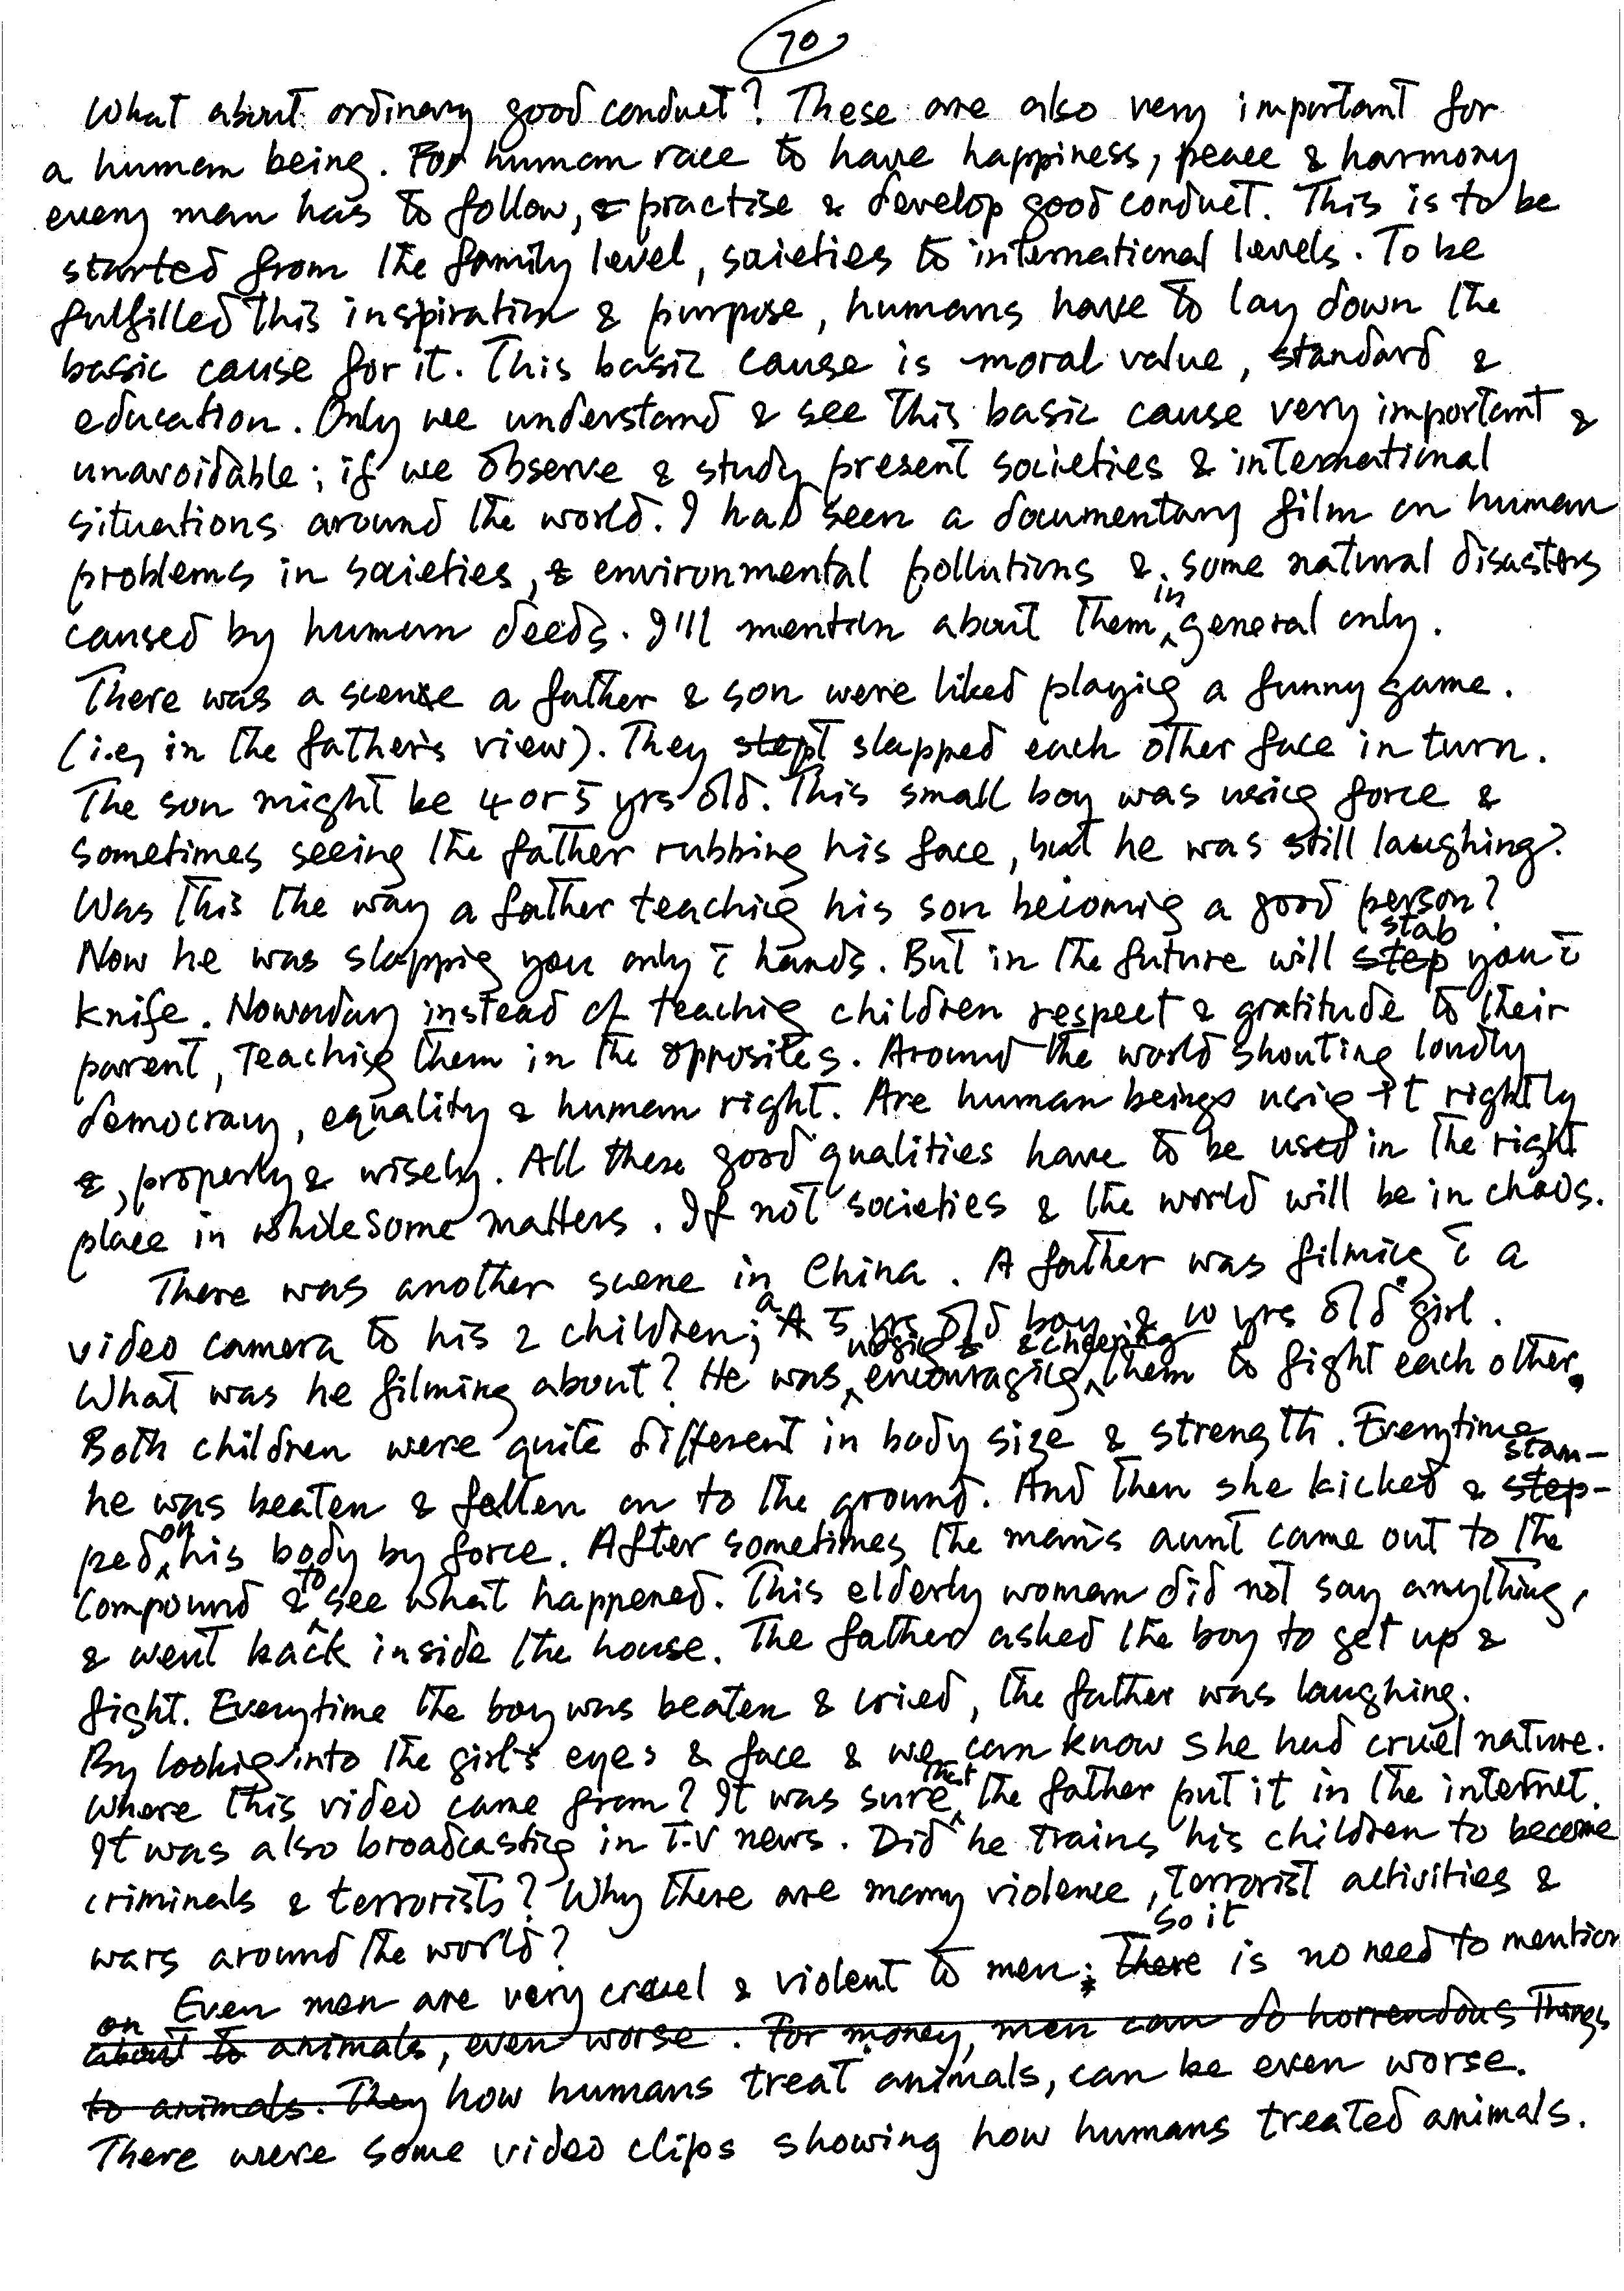 70
What about ordinary good conduct? These are also very important for
a human being. For human race to have happiness, peace & harmony
every man has to follow, & practise & develop good conduct. This is to be
started from the family level, societies to international levels. To be
fulfilled this inspiration & purpose, humans have to lay down the
basic cause for it. This basic cause is moral value, standard &
education. Only we understand & see this basic cause very important &
unavoidable; if we observe & study present societies & international
situations around the world. I had seen a documentary film on human
problems in societies, & environmental pollutions & some natural disasters
caused by human deeds. I'll mention about them in general only.
There was a scense a father & son were liked playing a funny game.
(i.e, in the father's view). They stept slapped each other face in turn.
The son might be 4 or 5 yrs old. This small boy was using force &
sometimes seeing the father rubbing his face, but he was still laughing?
Was this the way a father teaching his son becoming a good person?
Now he was slapping you only c̄ hands. But in the future will step stab you c̄
knife. Nowaday instead of teaching children respect & gratitude to their
parent, teaching them in the opposites. Around the world shouting loudly
democracy, equality & human right. Are human beings using it rightly
&, properly & wisely. All these good qualities have to be used in the right
place in wholesome matters. If not societies & the world will be in chaos.
There was another scene in China. A father was filming c̄ a
video camera to his 2 children; A a 5 yrs old boy & 10 yrs old girl.
What was he filming about? He was encouraging & cheering them to fight each other.
Both children were quite different in body size & strength. Everytime
he was beaten & fallen on to the ground. And then she kicked & step- stam-
ped on his body by force. After sometimes the man's aunt came out to the
compound & to see what happened. This elderly woman did not say anything,
& went back inside the house. The father asked the boy to get up &
fight. Everytime the boy was beaten & cried, the father was laughing.
By looking into the girl's eyes & face & we can know she had cruel nature.
Where this video came from? It was sure that the father put it in the internet.
It was also broadcasting in T.V news. Did he trains his children to become
criminals & terrorists? Why there are many violence, terrorist activities &
wars around the world?
Even men are very cruel & violent to men; there so it is no need to mention
about to on animals, even worse. For money, men can do horrendous things
to animals. They how humans treat animals, can be even worse.
There were some video clips showing how humans treated animals.